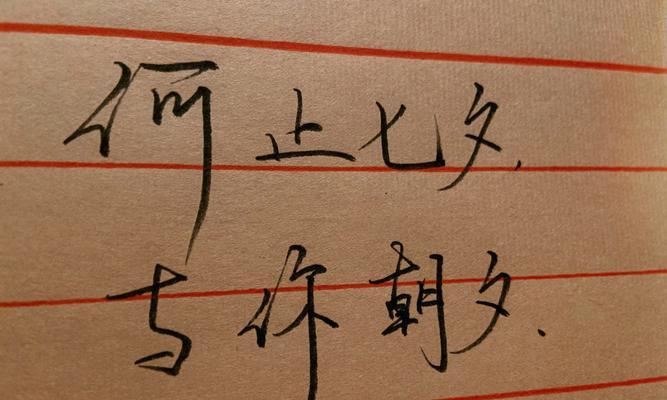 何止七夕.
与你朝夕.